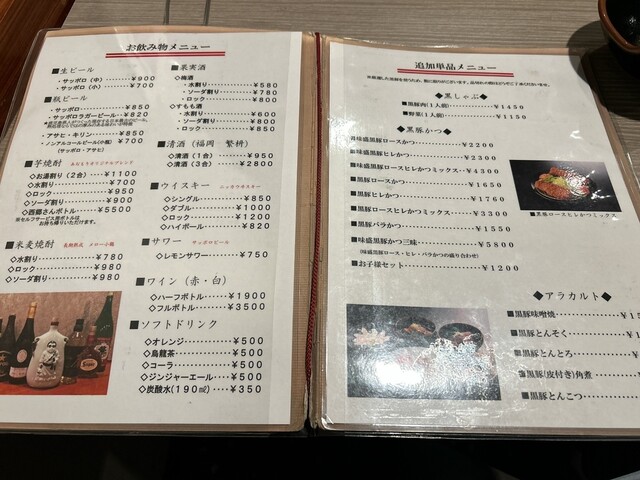 お飲み物メニュー
■生ビール
・サッポロ（中）‥‥‥￥900
・サッポロ（小）‥‥‥￥700
■瓶ビール
・サッポロ‥‥‥￥850
・サッポロラガービール‥‥￥820
・アサヒ・キリン‥‥￥850
・ノンアルコールビール(小瓶)‥￥700
（サッポロ・アサヒ）
■芋焼酎
◇お湯割り（2合）‥‥￥1100
◇水割り‥‥￥700
◇ロック‥‥￥950
◇ソーダ割り‥‥￥900
◇西郷さんボトル‥‥￥5500
※セルフサービス用ボトルは
お持ち帰りいただけます。
■米麦焼酎
長期熟成 メロー小鶴
◇水割り‥‥￥780
◇ロック‥‥￥980
◇ソーダ割り‥‥￥980
■果実酒
◇梅酒
・水割り‥‥￥580
・ソーダ割り‥‥￥780
・ロック‥‥￥800
◇すもも酒
・水割り‥‥￥600
・ソーダ割り‥‥￥800
・ロック‥‥￥850
■清酒（福岡 繁桝）
◇清酒（1合）‥‥￥950
◇清酒（2合）‥‥￥1750
■ウイスキー
◇シングル‥‥￥850
◇ダブル‥‥￥1000
◇ロック‥‥￥1200
◇ハイボール‥‥￥820
■サワー
サッポロビール
◇レモンサワー‥‥￥750
■ワイン（赤・白）
◇ハーフボトル‥‥￥1900
◇フルボトル‥‥￥3500
■ソフトドリンク
◇オレンジ‥‥￥500
◇烏龍茶‥‥￥500
◇コーラ‥‥￥500
◇ジンジャーエール‥‥￥500
◇炭酸水(190㎖)‥‥￥350
追加単品メニュー
◆黒しゃぶ◆
■黒豚肉(1人前)‥‥￥1450
■野菜(1人前)‥‥￥1150
◆黒豚かつ◆
味盛黒豚ロースかつ‥‥￥2200
味盛黒豚ヒレかつ‥‥￥2300
■味盛黒豚ロースヒレかつミックス‥‥￥4300
■黒豚ロースかつ‥‥￥1650
■黒豚ヒレかつ‥‥￥1760
■黒豚ロースヒレかつミックス‥‥￥3300
■黒豚バラかつ‥‥￥1550
■味盛黒豚かつ三昧‥‥￥5800
(味盛黒豚ロース・ヒレ・バラかつの盛り合わせ)
■お子様セット‥‥￥1200
■黒豚ロースヒレかつミックス
◆アラカルト◆
■黒豚味噌焼‥‥￥
■黒豚とんそく‥‥￥
■黒豚とんとろ‥‥
■黒豚(皮付き)角煮‥‥
■黒豚とんこつ‥‥